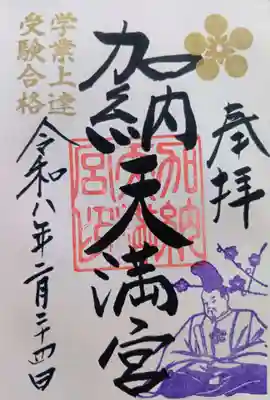 奉拝
加納天満宮
学業上達
受験合格
令和八年二月二十四日